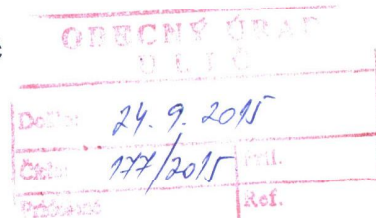 OBECNÝ ÚRAD
ULIČ
Došlo: 24. 9. 2015
Číslo: 177/2015 Príl.
Pridelené Ref.